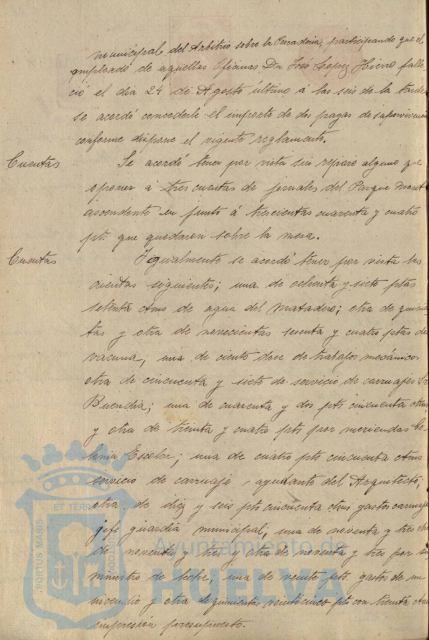 municipal del Arbitrio sobre la Pescadería, participando que el
empleado de aquellas oficinas Dn José López Hierro falle-
ció el día 24 de Agosto último á las seis de la tarde
se acordó concederle el importe de dos pagas de supervivencia
conforme dispone el vigente reglamento.
Cuentas Se acordó tener por vista sin reparo alguno que
oponer á tres cuentas de jornales del Parque
ascendente en junto á trescientas cuarenta y cuatro
pts. que quedaron sobre la mesa.
Cuentas Igualmente se acordó tener por vista las
cuentas siguientes; una de ochenta y siete ptas
setenta ctms de agua del Matadero; otra de
y otra de novecientas sesenta y cuatro ptas de
vacuna, una de ciento doce de trabajos mecánicos
otra de cincuenta y siete de servicio de carruajes
Buendia; una de cuarenta y dos pts cincuenta ctms
y otra de treinta y cuatro pts por meriendas
una de cuatro pts cincuenta ctms
servicio de carruaje, ayudante del Arquitecto;
otra, de diez y seis pts cincuenta ctms gastos carruaje
jefe guardia municipal; una de noventa y tres
de noventa y tres y otra de noventa y tres por su
ministro de una de veinte pts. gastos de un
incendio y otra veinticinco pts con treinta ctms
impresión presupuesto.
PORTUS MARIS ET TERRAE CUSTODIA
Ayuntamiento de
HUELVA